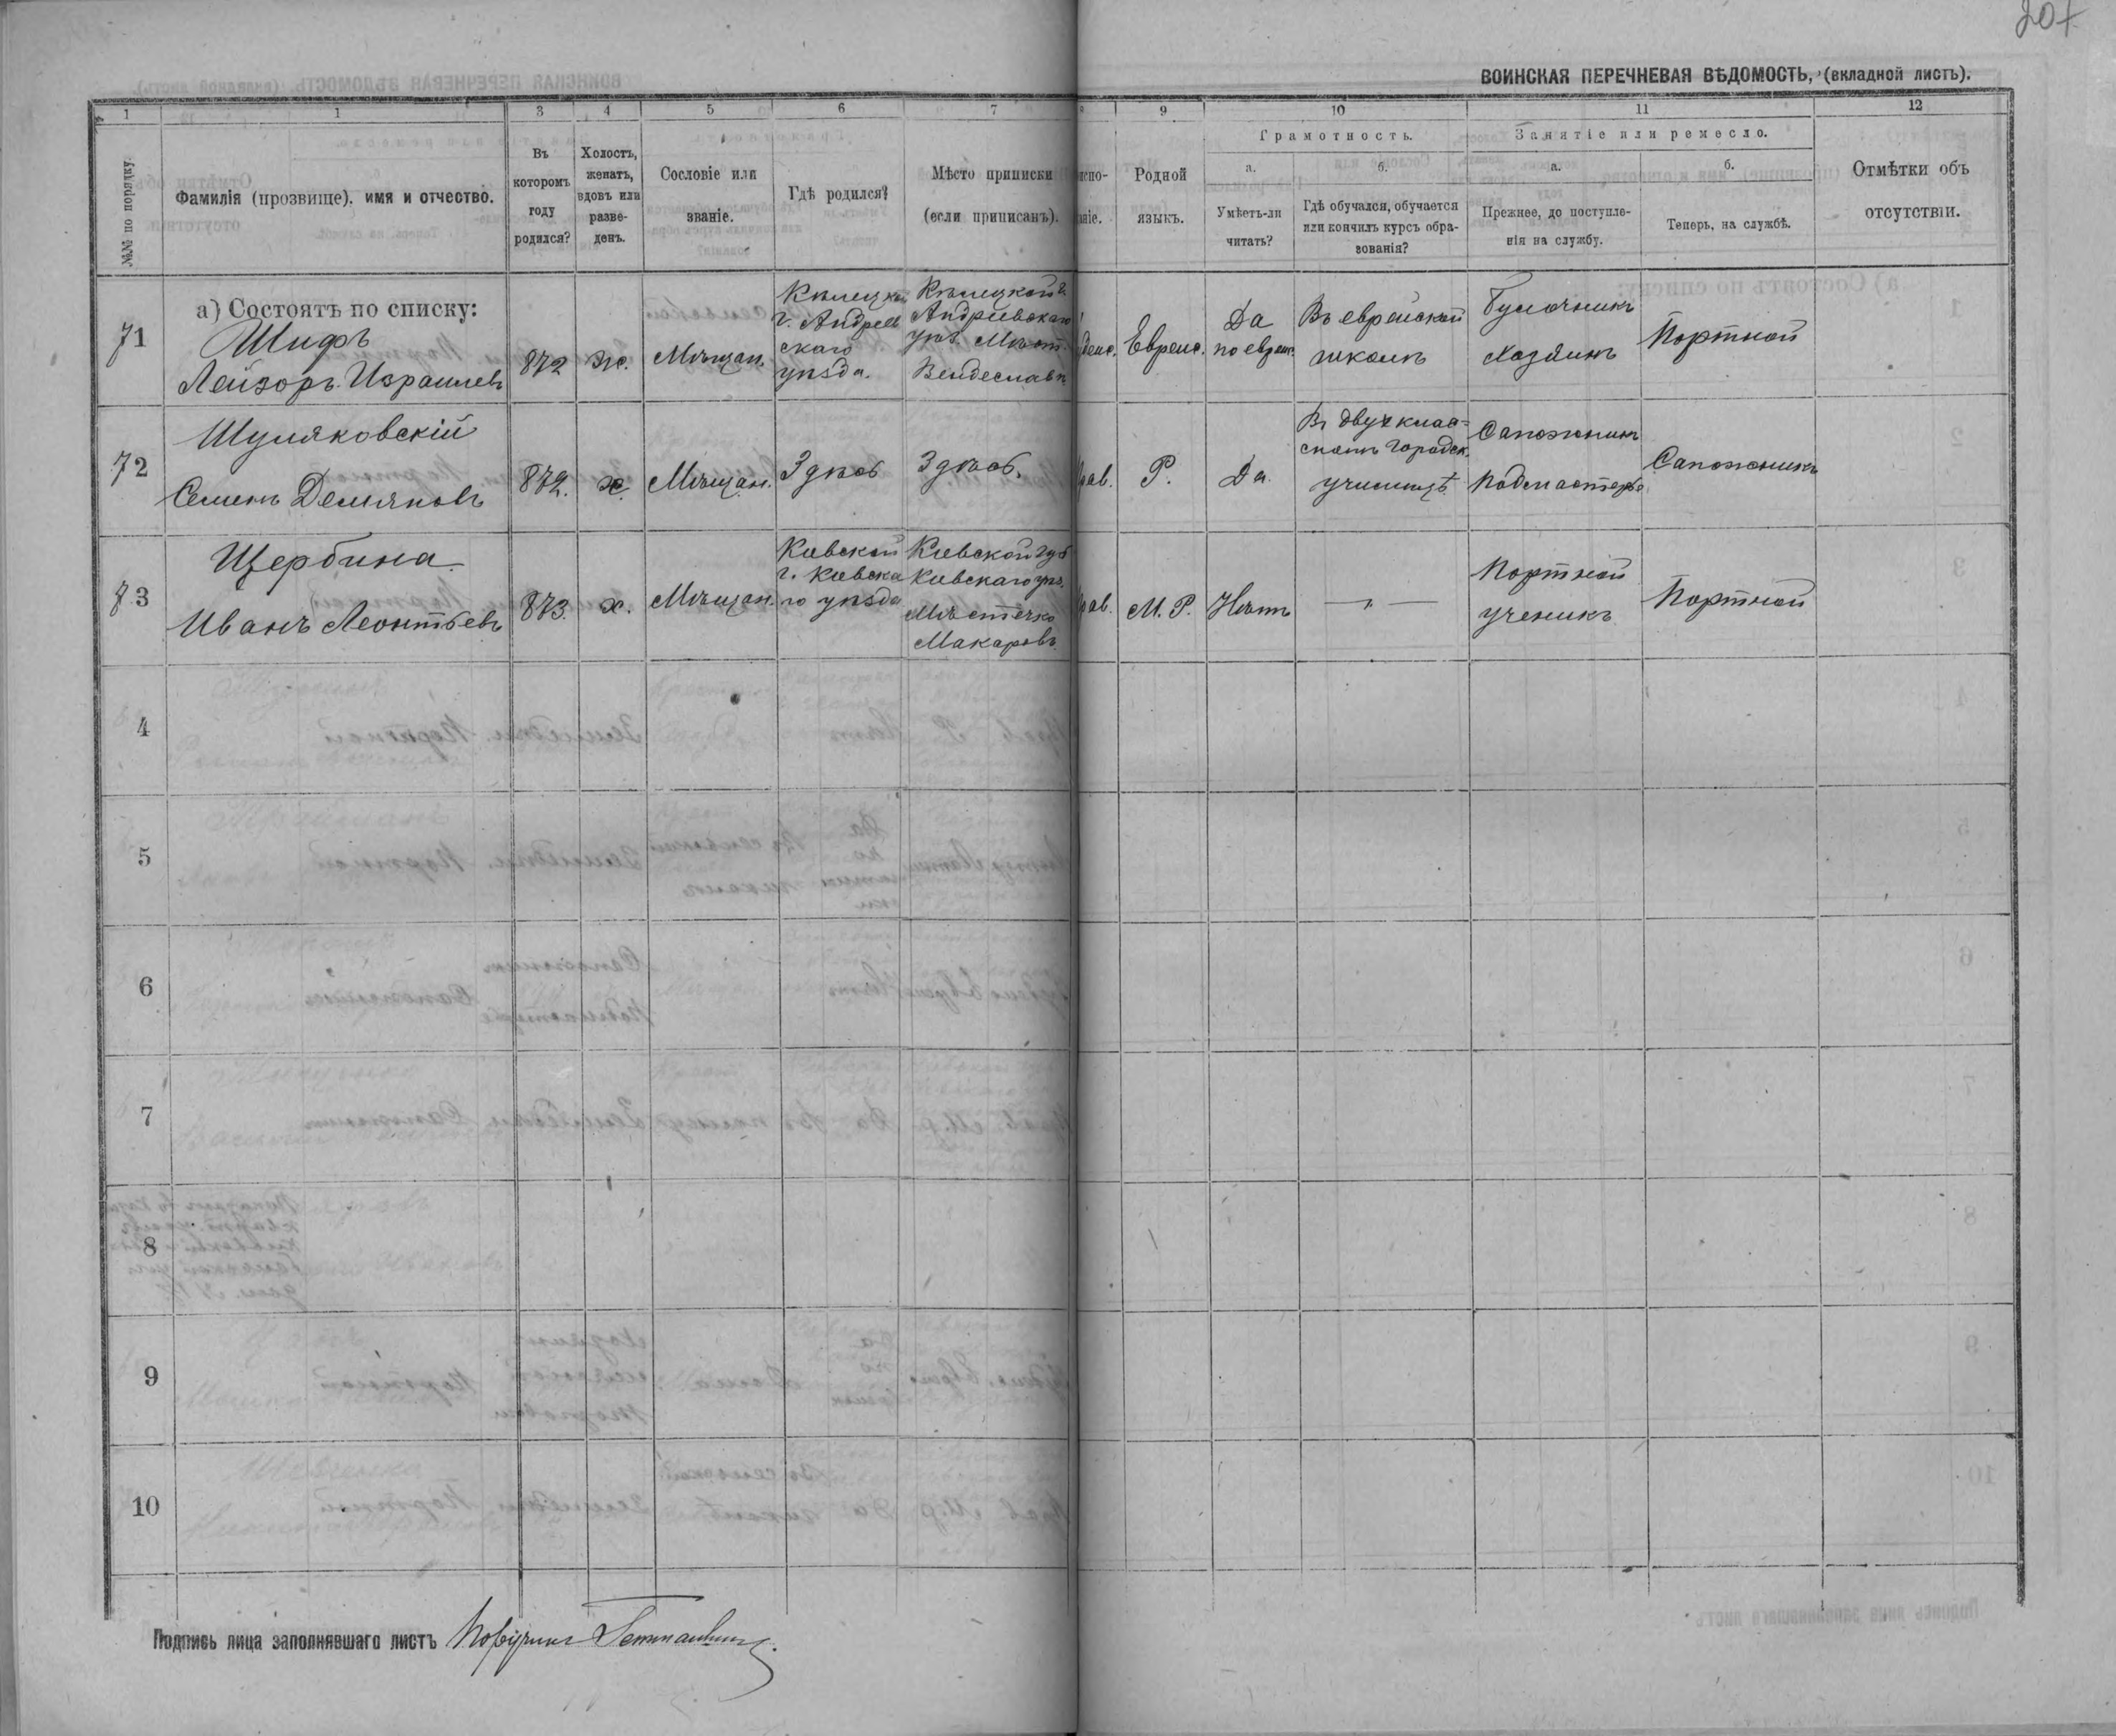 207
ВОИНСКАЯ ПЕРЕЧНЕВАЯ ВѢДОМОСТЬ, (вкладной листъ).
1 1 3 4 5 6 7 9 10 11 12
№№ по порядку.
Фамилія (прозвище), имя и отчество.
Въ которомъ году родился?
Холостъ, женатъ, вдовъ или разве-
денъ.
Сословіе или званіе.
Гдѣ родился?
Мѣсто приписки
(если приписанъ).
испо-
аніе.
Родной
языкъ.
Грамотность.
а.
Умѣетъ-ли
читать?
б.
Гдѣ обучался, обучается
или кончилъ курсъ обра-
зованія?
Занятіе или ремесло.
а.
Прежнее, до поступле-
нія на службу.
б.
Теперь, на службѣ.
Отмѣтки объ
отсутствіи.
а) Состоятъ по списку:
71
Шифъ
Лейзоръ Израилевъ
872
ж.
Мѣщан.
Кѣлецкой
г. Андреев
скаго
уѣзда.
Кѣлецкой г.
Андреевскаго
уѣз. Мѣст.
удейс.
Еврейс.
Да
по еврейс.
Въ еврейской
школѣ
Булочникъ
Хозяинъ
Портной
72
Шуляковскій
Семенъ Демяновъ
872.
х.
Мѣщан.
Здѣсь
Здѣсь.
рав.
Р.
Да.
Въ двухклас-
скомъ городск.
училищѣ
Сапожникъ
Подмастерье
Сапожникъ
73
Щербина
Иванъ Леонтьевъ
873.
х.
Мѣщан.
Киевской
г. Киевска
го уѣзда
Киевской губ
Киевскаго уѣз.
Мѣстечко
Макаровъ
рав.
М. Р.
Нѣтъ
— „ —
Портной
ученикъ
Портной
4
5
6
7
8
9
10
Подпись лица заполнявшаго листъ Поручикъ